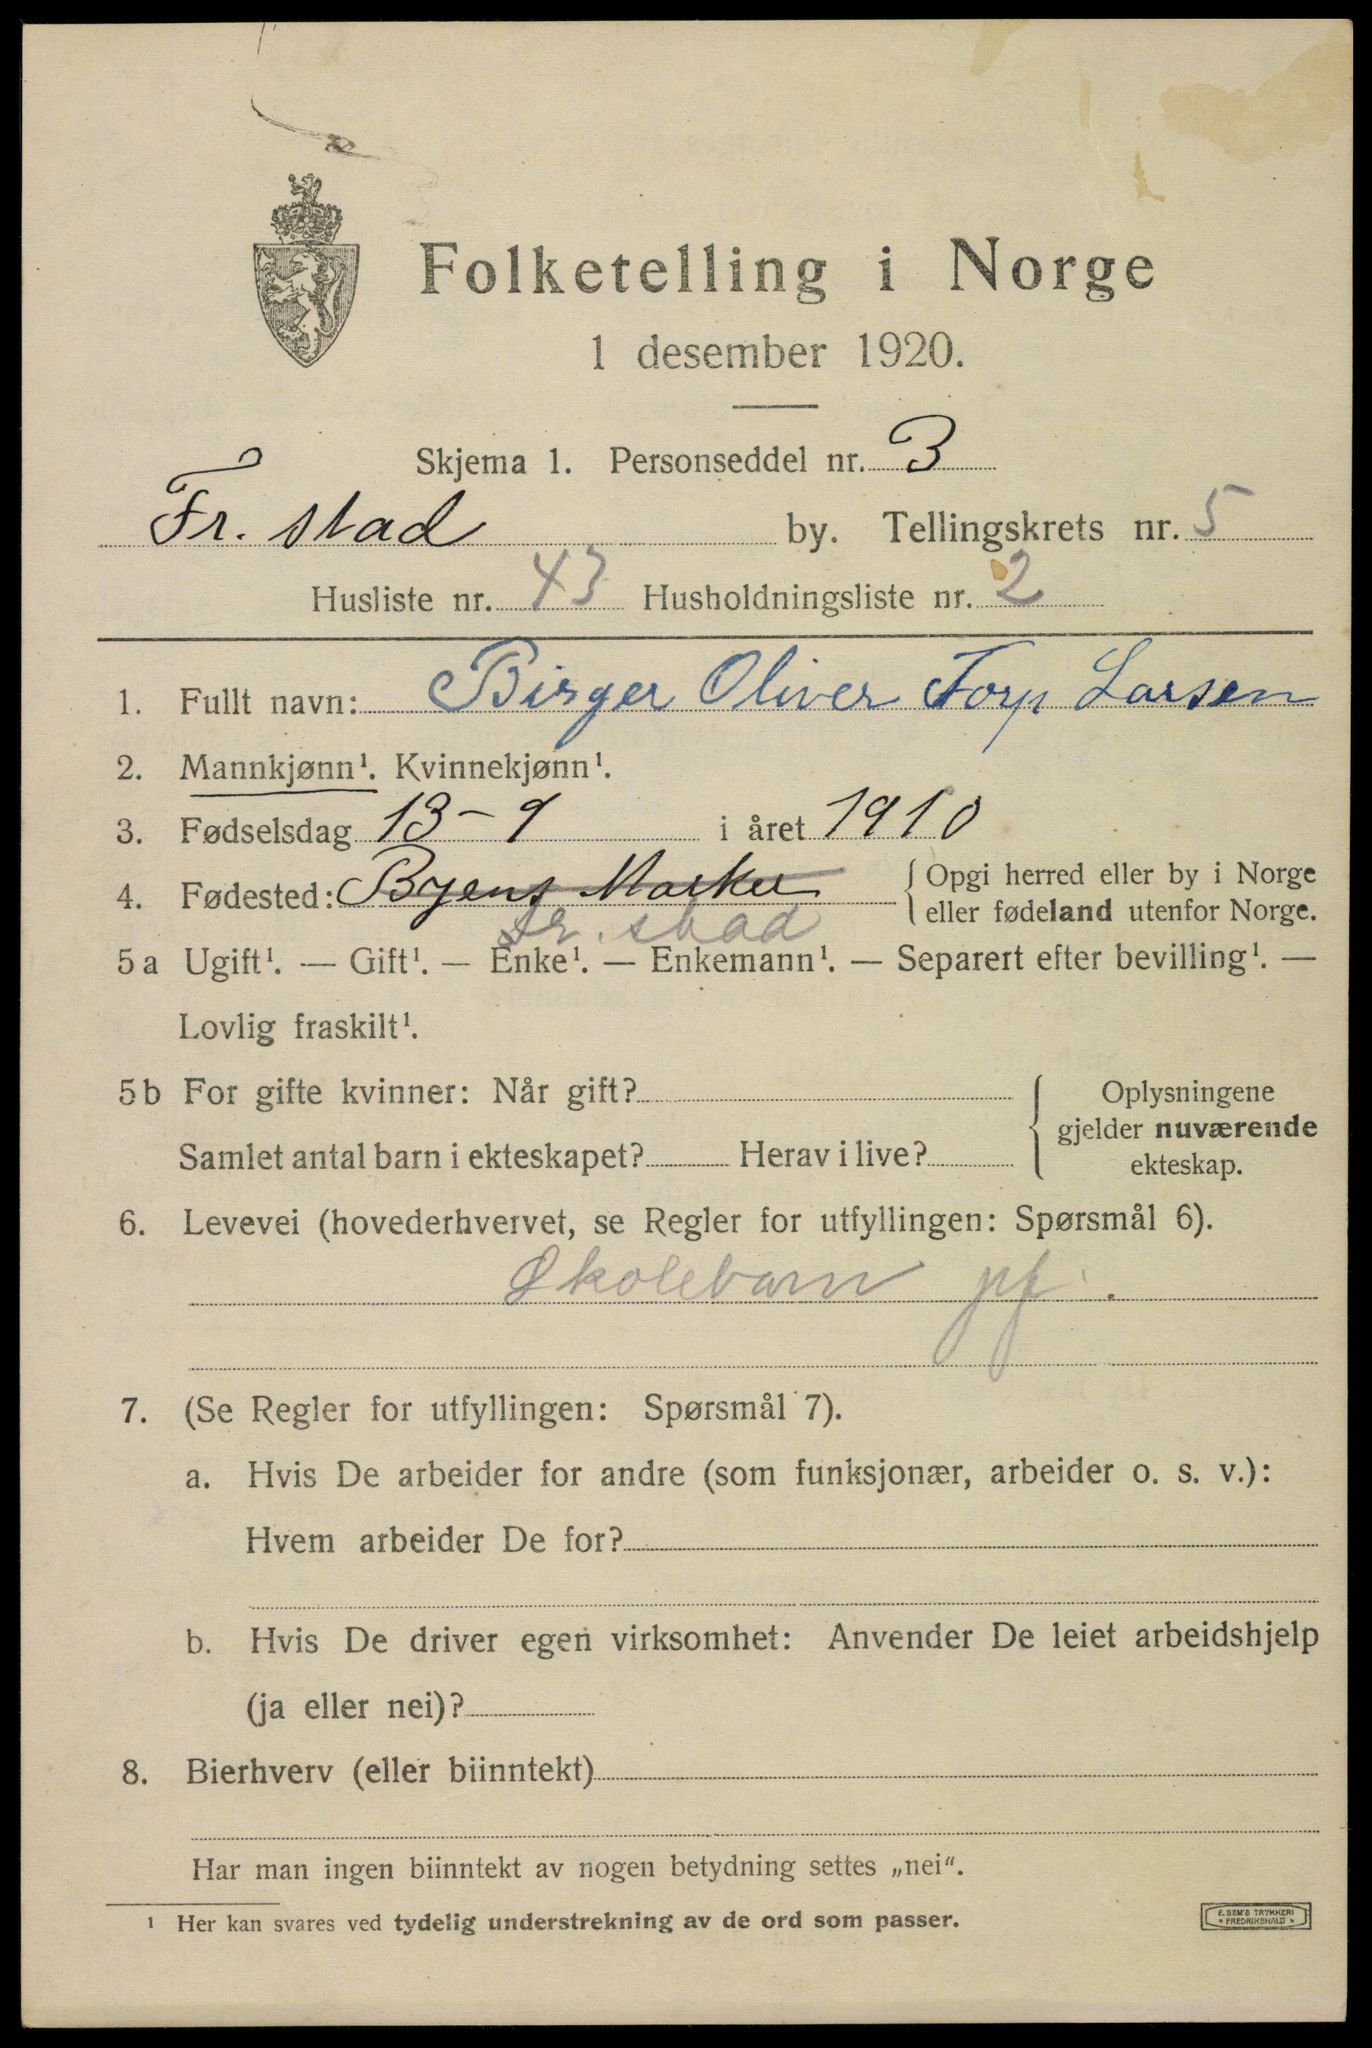 Folketelling i Norge
1 desember 1920.
Skjema 1. Personseddel nr. 3
Fr. stad by. Tellingskrets nr. 5
Husliste nr. 43 Husholdningsliste nr. 2
1. Fullt navn: Birger Oliver Torp Larsen
2. Mannkjønn¹. Kvinnekjønn¹.
3. Fødselsdag 13-9 i året 1910
4. Fødested: Byens Marker { Opgi herred eller by i Norge
eller fødeland utenfor Norge.
Fr. stad
5a Ugift¹. — Gift¹. — Enke¹. — Enkemann¹. — Separert efter bevilling¹. —
Lovlig fraskilt¹.
5b For gifte kvinner: Når gift? { Oplysningene
gjelder nuværende
Samlet antal barn i ekteskapet? Herav i live? ekteskap.
6. Levevei (hovederhvervet, se Regler for utfyllingen: Spørsmål 6).
Skolebarn pf.
7. (Se Regler for utfyllingen: Spørsmål 7).
a. Hvis De arbeider for andre (som funksjonær, arbeider o. s. v.):
Hvem arbeider De for?
b. Hvis De driver egen virksomhet: Anvender De leiet arbeidshjelp
(ja eller nei)?
8. Bierhverv (eller biinntekt)
Har man ingen biinntekt av nogen betydning settes „nei“.
¹ Her kan svares ved tydelig understrekning av de ord som passer.
E. SEM'S TRYKKERI
• FREDRIKSHALD •